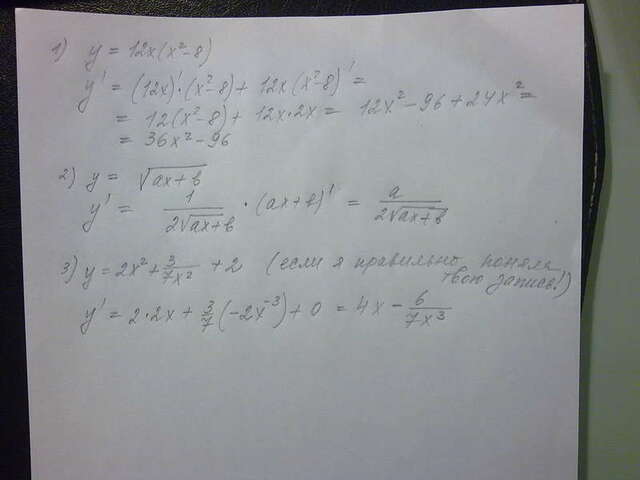 1) y = 12x(x²-8)
y' = (12x)'·(x²-8) + 12x(x²-8)' =
= 12(x²-8) + 12x·2x = 12x² - 96 + 24x² =
= 36x² - 96
2) y = √(ax+b)
y' = 1/(2√(ax+b)) · (ax+b)' = a/(2√(ax+b))
3) y = 2x² + 3/(7x²) + 2 (если я правильно поняла
твою запись!)
y' = 2·2x + 3/7(-2x⁻³) + 0 = 4x - 6/(7x³)